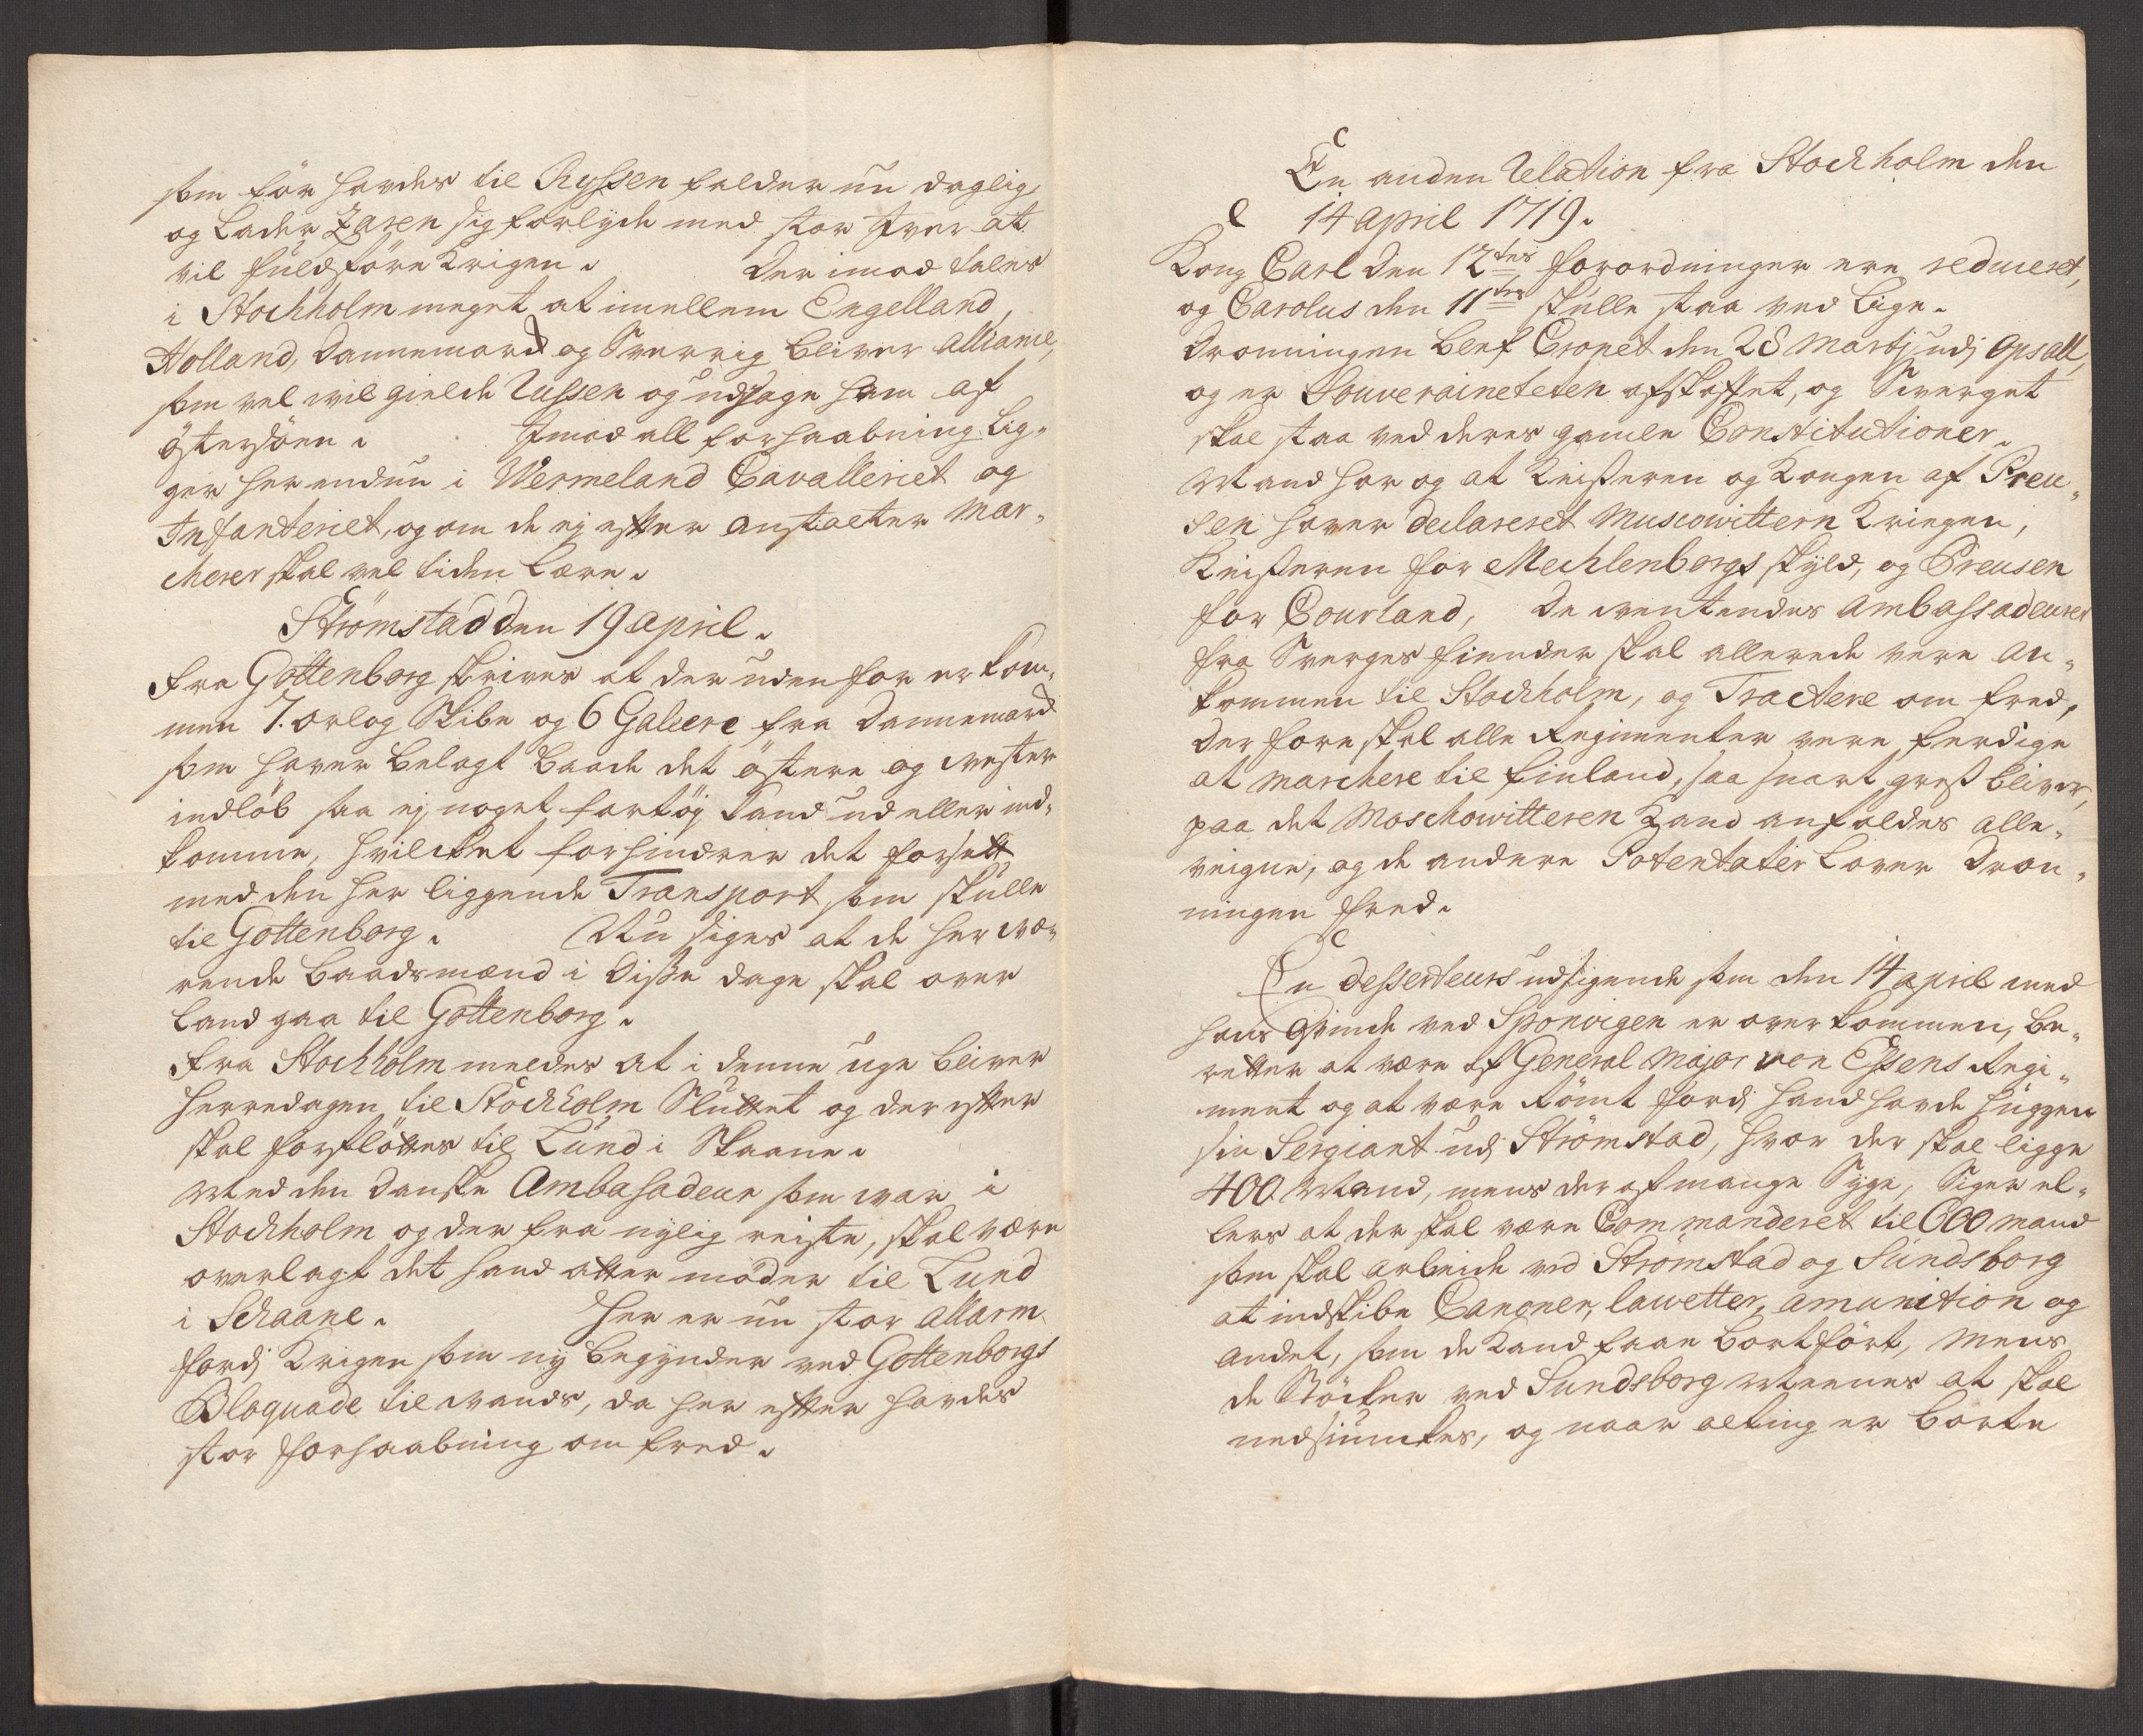 som før hafdes til Ryssen falder nu daglig
og lader Zaren sig forlyde med stor Jver at
vil fuldføre Krigen. Der imod tales
i Stockholm meget at imellem Engelland,
Holland, Dannemarck og Sverrig bliver alliance,
som vel wil gielde Russen og udjage ham af
östersöen. Jmod all forhaabning lig¬
ger her endnu i Wermeland Cavalleriet og
Infanteriet, og om de ej efter anstalter mar¬
cherer skal vel tiden lære.
Strömstad den 19 april.
Fra Gottenborg skrives at der uden for er kom¬
men 7. orlog Skibe og 6 Galeere fra Dannemarck
som haver belagt baade det östere og wester
indlöb saa ej noget fartöj kand ud eller ind¬
komme, hvilcket forhindrer det forsett
med den her liggende Transport, som skulle
til Gottenborg. Nu siges at de her væ¬
rende baadsmænd i disse dage skal over
land gaa til Gottenborg.
Fra Stockholm meldes at i denne uge bliver
Herredagen til Stockholm Sluttet og der efter
skal forflöttes til Lund i Skaane.
Med den danske Ambasadeur som war i
Stockholm og der fra nylig reiste, skal være
overlagt det hand atter möder til Lund
i Schaane. Her er nu stor allarm
fordj Krigen som ny begynder ved Gottenborgs
Bloquade til wands, da her efter hafdes
stor forhaabning om fred.
En anden Relation fra Stockholm den
14 april 1719.
Kong Carl den 12tes forordninger ere reduceret,
og Carolus den 11tes skulle staa ved lige.
Dronningen blef Cronet den 28 Martij udj Opsall,
og er Souveraineteten afskaffet, og Sverget
skal staa ved deres gamle Constitutioner.
Mand har og at Keiseren og Kongen af Preu¬
sen haver declareret Muscowittern Kriegen,
Keiseren for Mechlenborgs skyld, og Preusen
for Courland, De wentendes Ambassadeurer
fra Sverges fiender skal allerede vere an¬
kommen til Stockholm, og Tractere om fred,
Der fore skal alle Regimenter vere ferdige
at marchere til Finland, saa snart gress bliver,
paa det Moschowitteren Kand anfaldes alle¬
veigne, og de andere Potentater lover Dron¬
ningen fred.
En desserteurs udsigende som den 14 april med
hans Qvinde ved Sponvigen er over kommen, be¬
retter at være af General Major von Essens Regi¬
ment og at være Römt fordj hand hafde huggen
sin Sergiant udj Strömstad, hvor der skal ligge
400 Mand, mens der af mange Syge, Siger el¬
lers at der skal være Commanderet til 600 mand
som skal arbeide ved Strömstad og Sundsborg
at indskibe Canoner, lawetter, amunition og
andet, som de Kand faae bortfört, mens
de Stöcker ved Sundsborg Meenes at skal
nedsiunckes, og naar alting er borte